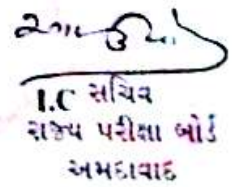 I.C સચિવ
રાજ્ય પરીક્ષા બોર્ડ
અમદાવાદ